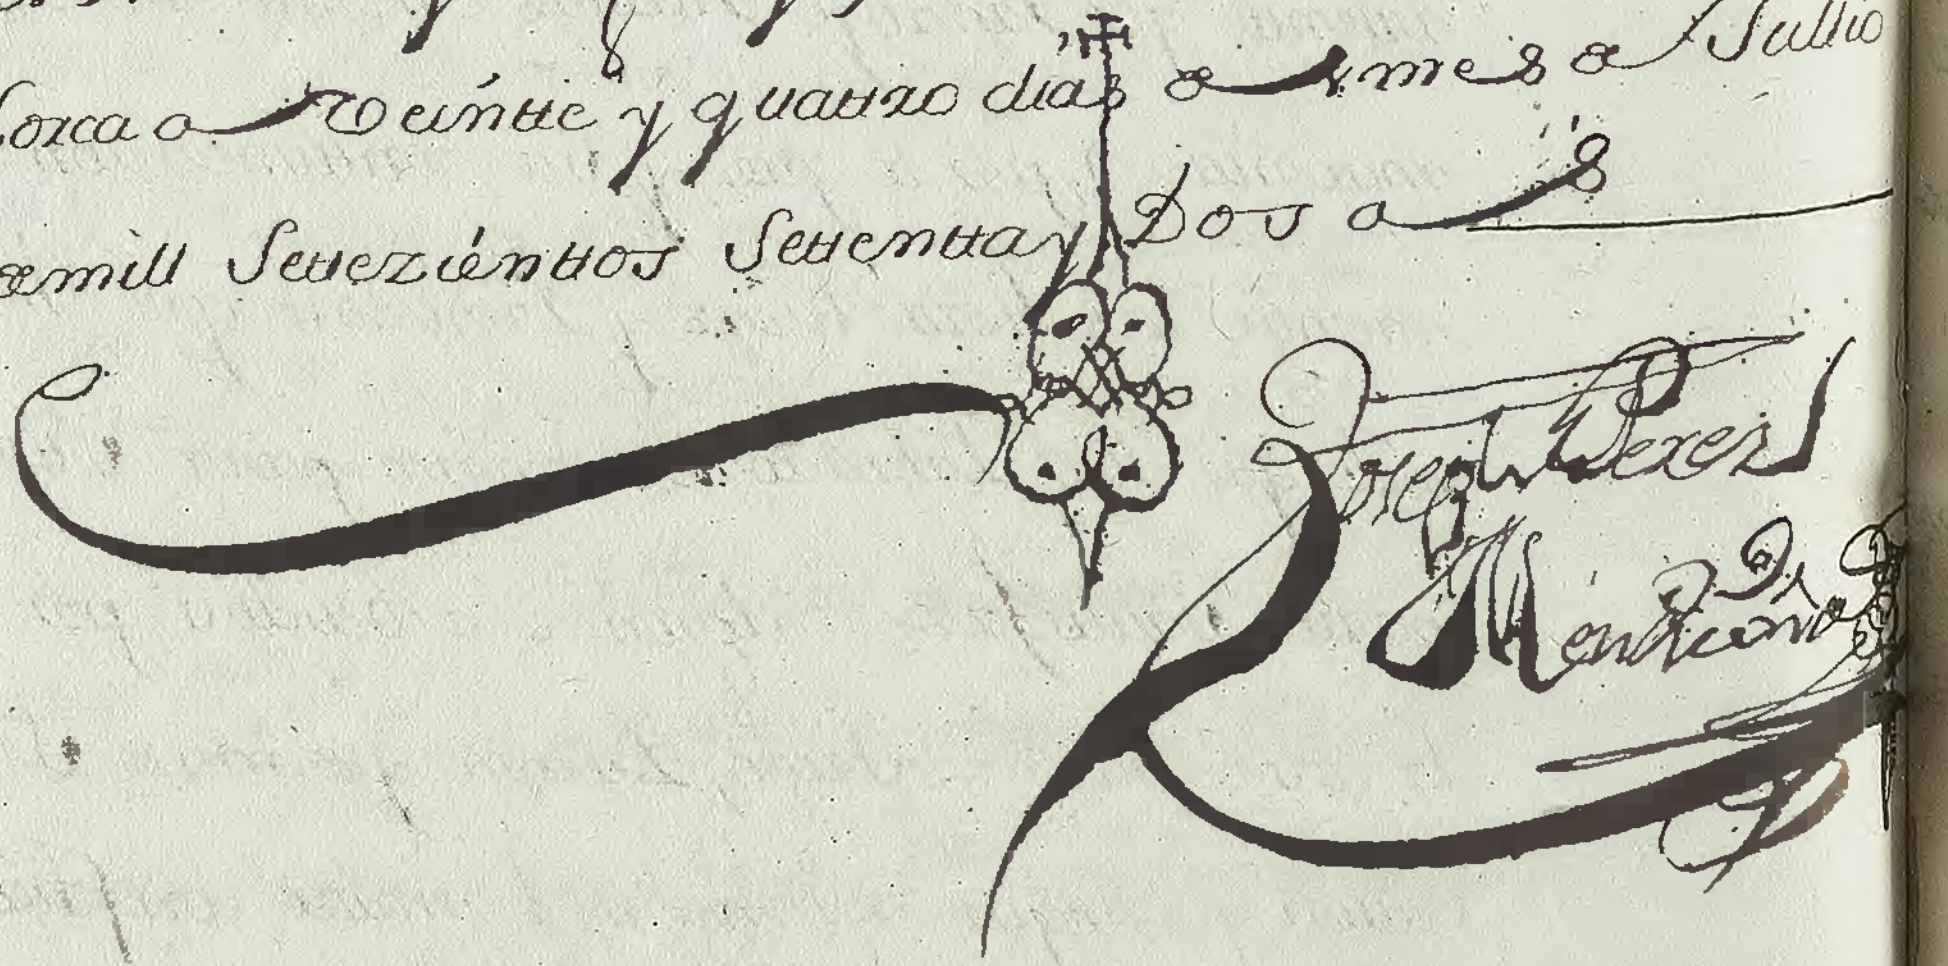 Lorca a Veinte y quatro dias del mes de Jullio
de mill Setezientos Setenta y Dos as
Joseph Perez
Menduiña